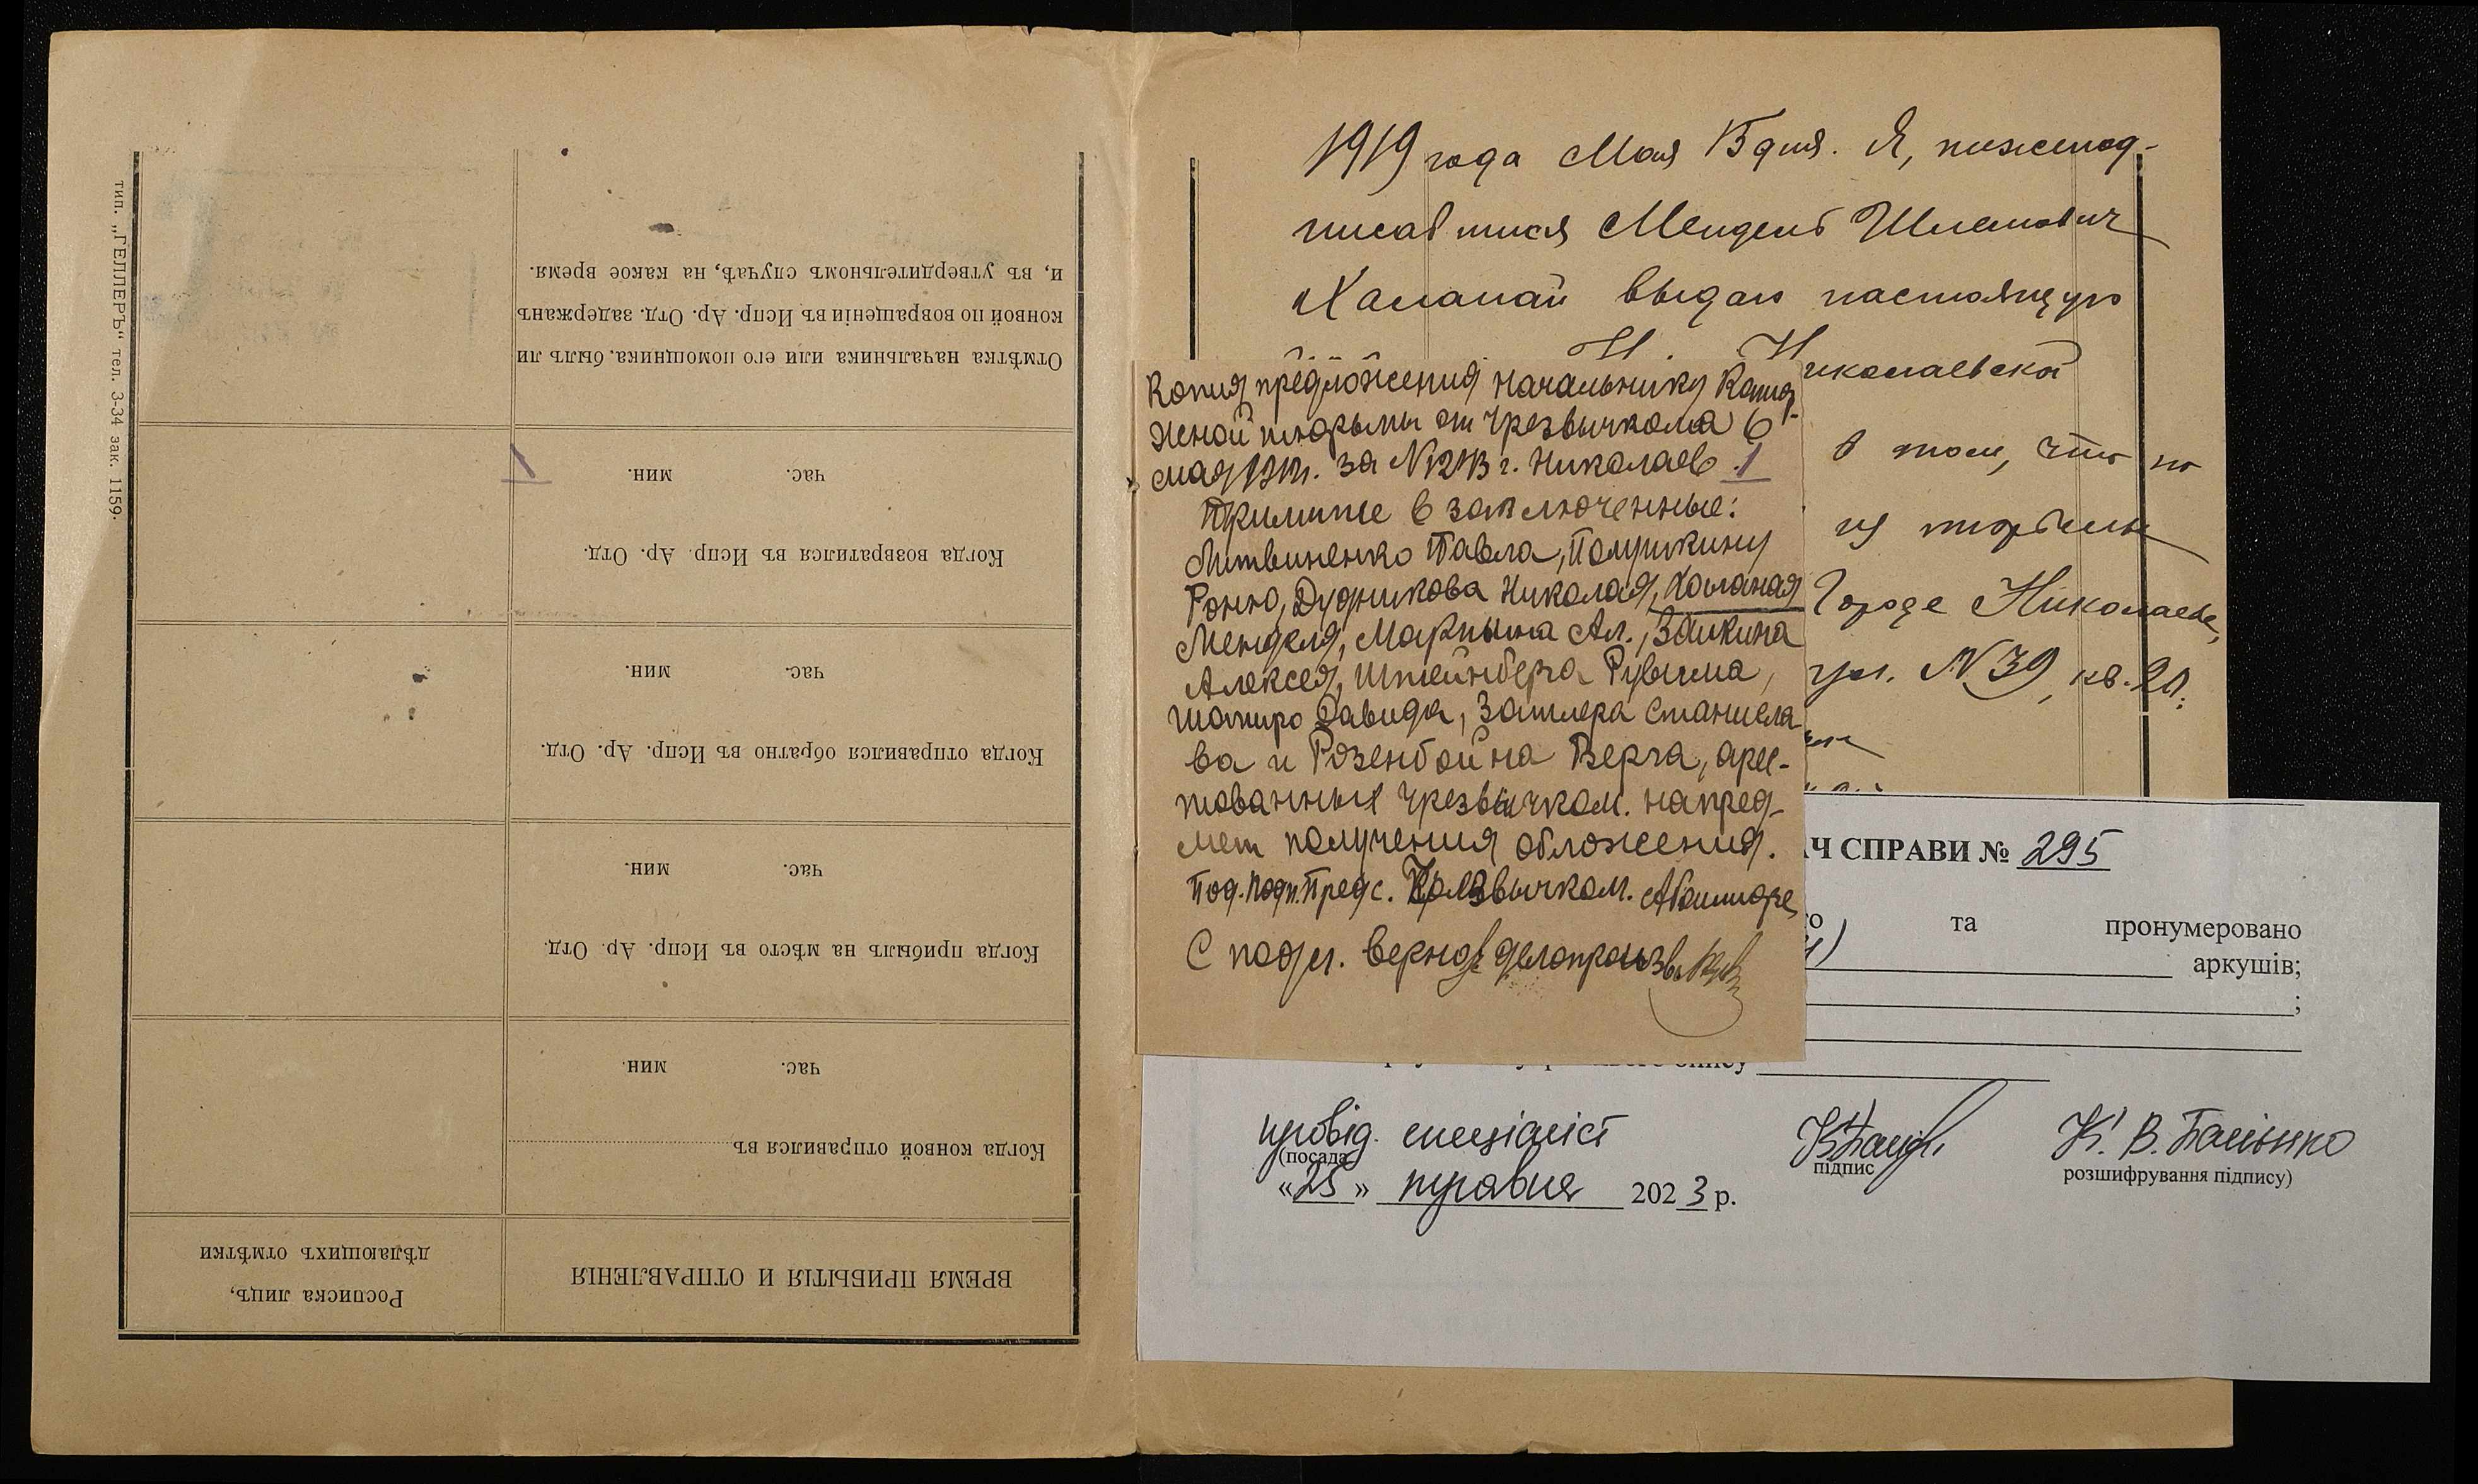 тип. „ГЕЛЛЕРЪ“ тел. 3-34 зак. 1159.
Росписка лицъ,
дѣлающихъ отмѣтки
ВРЕМЯ ПРИБЫТІЯ И ОТПРАВЛЕНІЯ
Когда конвой отправился въ
час. мин.
Когда прибылъ на мѣсто въ Испр. Ар. Отд.
час. мин.
Когда отправился обратно въ Испр. Ар. Отд.
час. мин.
Когда возвратился въ Испр. Ар. Отд.
час. мин.
1
Отмѣтка начальника или его помощника, былъ ли
конвой по возвращеніи въ Испр. Ар. Отд. задержанъ
и, въ утвердительномъ случаѣ, на какое время.
1919 года Мая 13 дня. Я, нижепод-
писавшийся Мендель Шлемович
Халанай выдаю настоящую
Николаевской
в том, что по
из тюрьмы
Городе Николаеве,
ул. N 39, кв.
Копия предложения начальнику Катор-
жной тюрьмы от Чрезвычкома 6
мая 1919г. за N 1213 г. Николаев 1
Примите в заключенные:
Литвиненко Павла, Полушкину
Роню, Дудникова Николая, Халаная
Менделя, Мартына Ал., Зайкина
Алексея, Штейнберга Рувима,
Шапиро Давида, Затлера Станисла-
ва и Розенбойна Берга, арес-
тованных Чрезвычком. на пред-
мет получения обложения.
Под. подп. Предс. Чрезвычком. Абашидзе
С подл. верно: делопроизв.
Ч СПРАВИ № 295
та пронумеровано
аркушів;
;
опису
провід. спеціаліст
(посада
підпис
К. В. Балыко
розшифрування підпису)
«25» травня 2023 р.